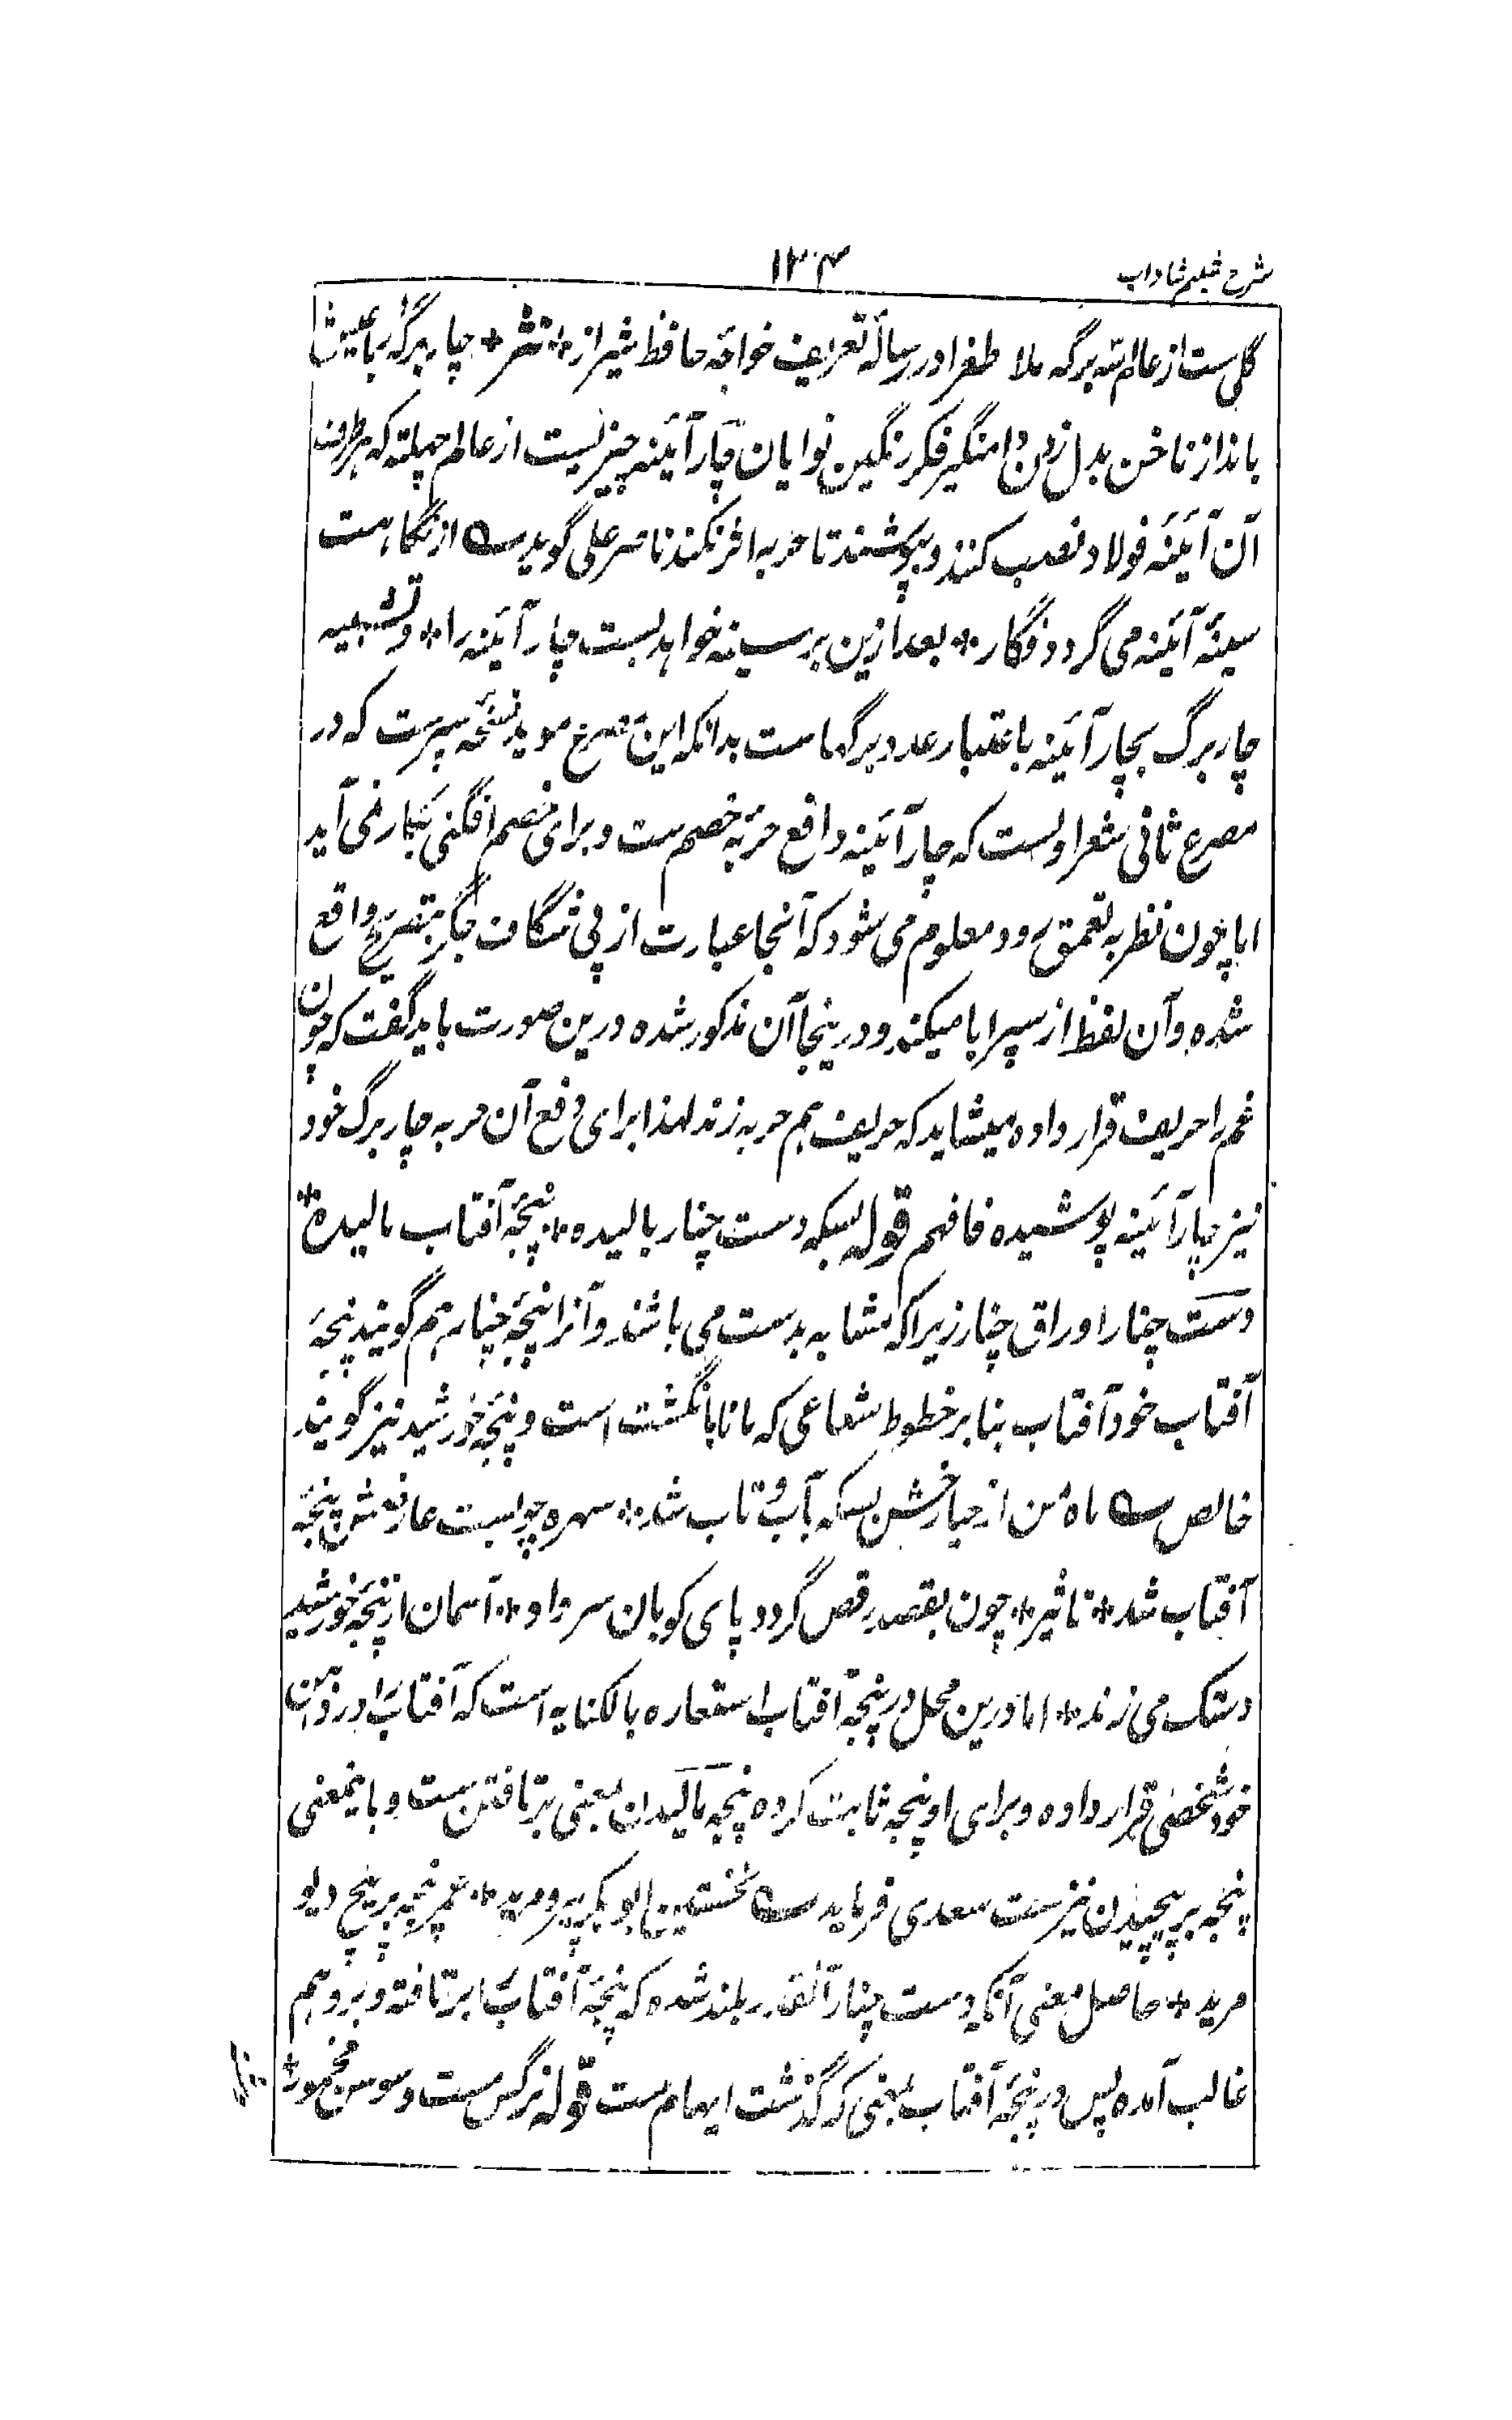 شرح شبنم شاداب
۱۳۴
گلی ست از عالم سه برگه ملا طغرا در رسالهٔ تعریف خواجه حافظ شیراز * نثر * چار برگهٔ رباعیش
بانداز ناخن بدل زدن دامنگیر فکر رنگین نوایان چار آئینه چیزیست از عالم چهلته که بر طرف
آن آئینهٔ فولاد نصب کنند و بپوشند تا حربه اثر نکند ناصر علی گوید ؎ از نگاهت
سینهٔ آئینه می گردد فگار * بعد ازین بر سینه خواهد بست چار آئینه را * و تشبیه
چار برگ بچار آئینه باعتبار عدد برگهاست بدانکه این مصرع موید نسخهٔ سپرست که در
مصرع ثانی شعر اولست که چار آئینه دافع حربهٔ خصم ست و برای خصم افگنی بکار نمی آید
اما چون نظر به تعمق رود معلوم می شود که آنجا عبارت از پی شگاف جگر بتصریح واقع
شده و آن لفظ از سپر ابا میکند و درینجا آن مذکور شده درین صورت باید گفت که چون
غم را حریف قرار داده میشاید که حریف هم حربه زند لهذا برای دفع آن حربه چار برگ خود
نیز چار آئینه پوشیده فافهم قوله بسکه دست چنار بالیده * پنجهٔ آفتاب مالیده *
دست چنار اوراق چنار زیرا که مشابه بدست می باشند و آنرا پنجهٔ چنار هم گویند پنجهٔ
آفتاب خود آفتاب بنا بر خطوط شعاعی که مانا بانگشت است و پنجهٔ خورشید نیز گویند
خالص ؎ ماه من از حیا رخش بسکه بآب و تاب شد * سهره چو بست عارضش پنجهٔ
آفتاب شد * تاثیر * چون بقصد رقص گردد پای کوبان سرو او * آسمان از پنجهٔ خورشید
دستک می زند * اما درین محل در پنجهٔ آفتاب استعاره بالکنایه است که آفتاب را در ذهن
خود شخصی قرار داده و برای او پنجه ثابت کرده پنجه مالیدن بمعنی برتافتن ست و باینمعنی
پنجه بر پیچیدن نیزست سعدی فرماید ؎ نخستین ابوبکر پیر و مرید * عمر پنجه بر پیچ دیو
مرید * حاصل معنی آنکه دست چنار آنقدر بلند شده که پنجهٔ آفتاب را برتافته و برو هم
غالب آمده پس در پنجهٔ آفتاب بمعنی که گذشت ایهام ست قوله نرگس مست و سوسن مخمور *